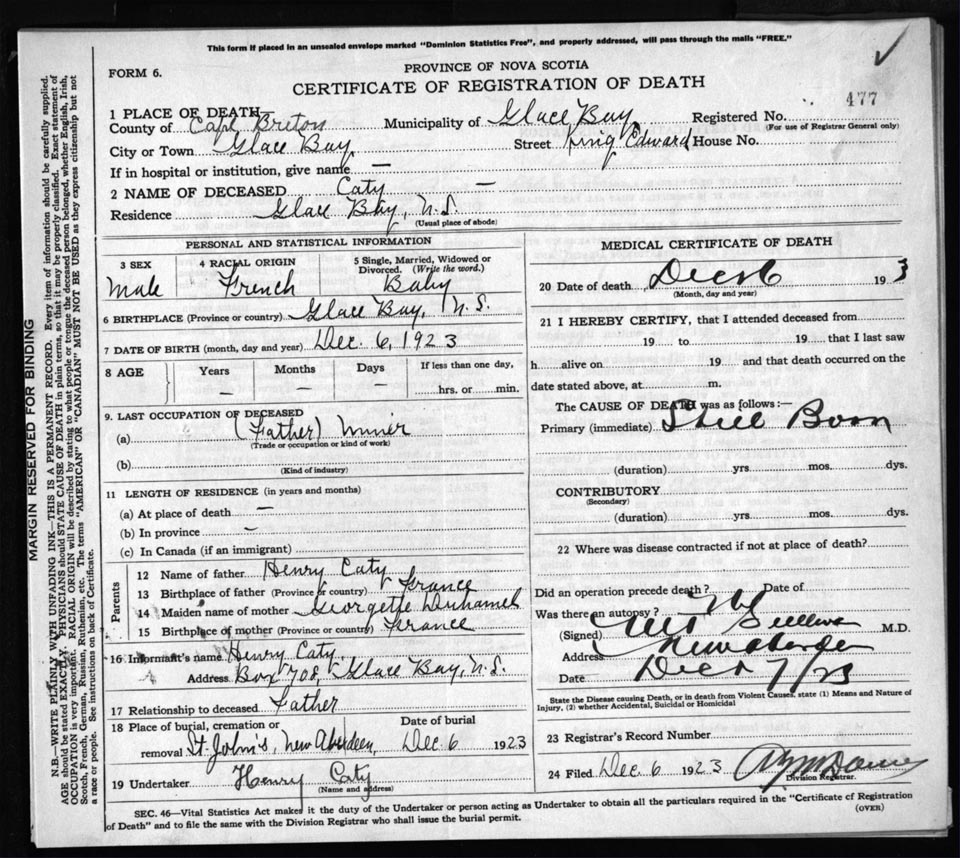 This form if placed in an unsealed envelope marked "Dominion Statistics Free", and properly addressed, will pass through the mails "FREE."
FORM 6.
PROVINCE OF NOVA SCOTIA
CERTIFICATE OF REGISTRATION OF DEATH
477
1 PLACE OF DEATH—
County of Cape Breton Municipality of Glace Bay Registered No.
(For use of Registrar General only)
City or Town Glace Bay Street King Edward House No.
If in hospital or institution, give name —
2 NAME OF DECEASED Caty —
Residence Glace Bay, N.S.
(Usual place of abode)
PERSONAL AND STATISTICAL INFORMATION
3 SEX 4 RACIAL ORIGIN 5 Single, Married, Widowed or Divorced. (Write the word.)
Male French Baby
6 BIRTHPLACE (Province or country) Glace Bay, N.S.
7 DATE OF BIRTH (month, day and year) Dec. 6, 1923
8 AGE Years Months Days If less than one day,
— — — hrs. or min.
9. LAST OCCUPATION OF DECEASED
(a) (Father) Miner
(Trade or occupation or kind of work)
(b)
(Kind of industry)
11 LENGTH OF RESIDENCE (in years and months)
(a) At place of death —
(b) In province —
(c) In Canada (if an immigrant)
Parents
12 Name of father Henry Caty
13 Birthplace of father (Province or country) France
14 Maiden name of mother Georgette Duhamel
15 Birthplace of mother (Province or country) France
16 Informant's name Henry Caty
Address Box 708, Glace Bay, N.S.
17 Relationship to deceased Father
18 Place of burial, cremation or removal St. John's, New Aberdeen, Date of burial Dec. 6 1923
19 Undertaker Henry Caty
(Name and address)
MEDICAL CERTIFICATE OF DEATH
20 Date of death Dec 6 1923
(Month, day and year)
21 I HEREBY CERTIFY, that I attended deceased from
19 to 19 that I last saw
h alive on 19 and that death occurred on the
date stated above, at m.
The CAUSE OF DEATH was as follows:—
Primary (immediate) Still Born
(duration) yrs. mos. dys.
CONTRIBUTORY
(Secondary)
(duration) yrs. mos. dys.
22 Where was disease contracted if not at place of death?
Did an operation precede death? Date of
Was there an autopsy? No
(Signed) M.D.
Address New Aberdeen
Date Dec 7/23
State the Disease causing Death, or in death from Violent Cause, state (1) Means and Nature of Injury, (2) whether Accidental, Suicidal or Homicidal
23 Registrar's Record Number
24 Filed Dec. 6 1923
Division Registrar.
SEC. 46—Vital Statistics Act makes it the duty of the Undertaker or person acting as Undertaker to obtain all the particulars required in the "Certificate of Registration
of Death" and to file the same with the Division Registrar who shall issue the burial permit.
(OVER)
MARGIN RESERVED FOR BINDING
N.B.—WRITE PLAINLY WITH UNFADING INK—THIS IS A PERMANENT RECORD. Every item of information should be carefully supplied.
AGE should be stated EXACTLY. PHYSICIANS should STATE CAUSE OF DEATH in plain terms, so that it may be properly classified. Exact statement of
OCCUPATION is very important. RACIAL ORIGIN will be described by stating to what people or tongue the deceased person belonged, whether English, Irish,
Scotch, French, German, Russian, Ruthenian, etc. The terms "AMERICAN" OR "CANADIAN" MUST NOT BE USED as they express citizenship but not
a race or people. See instructions on back of Certificate.